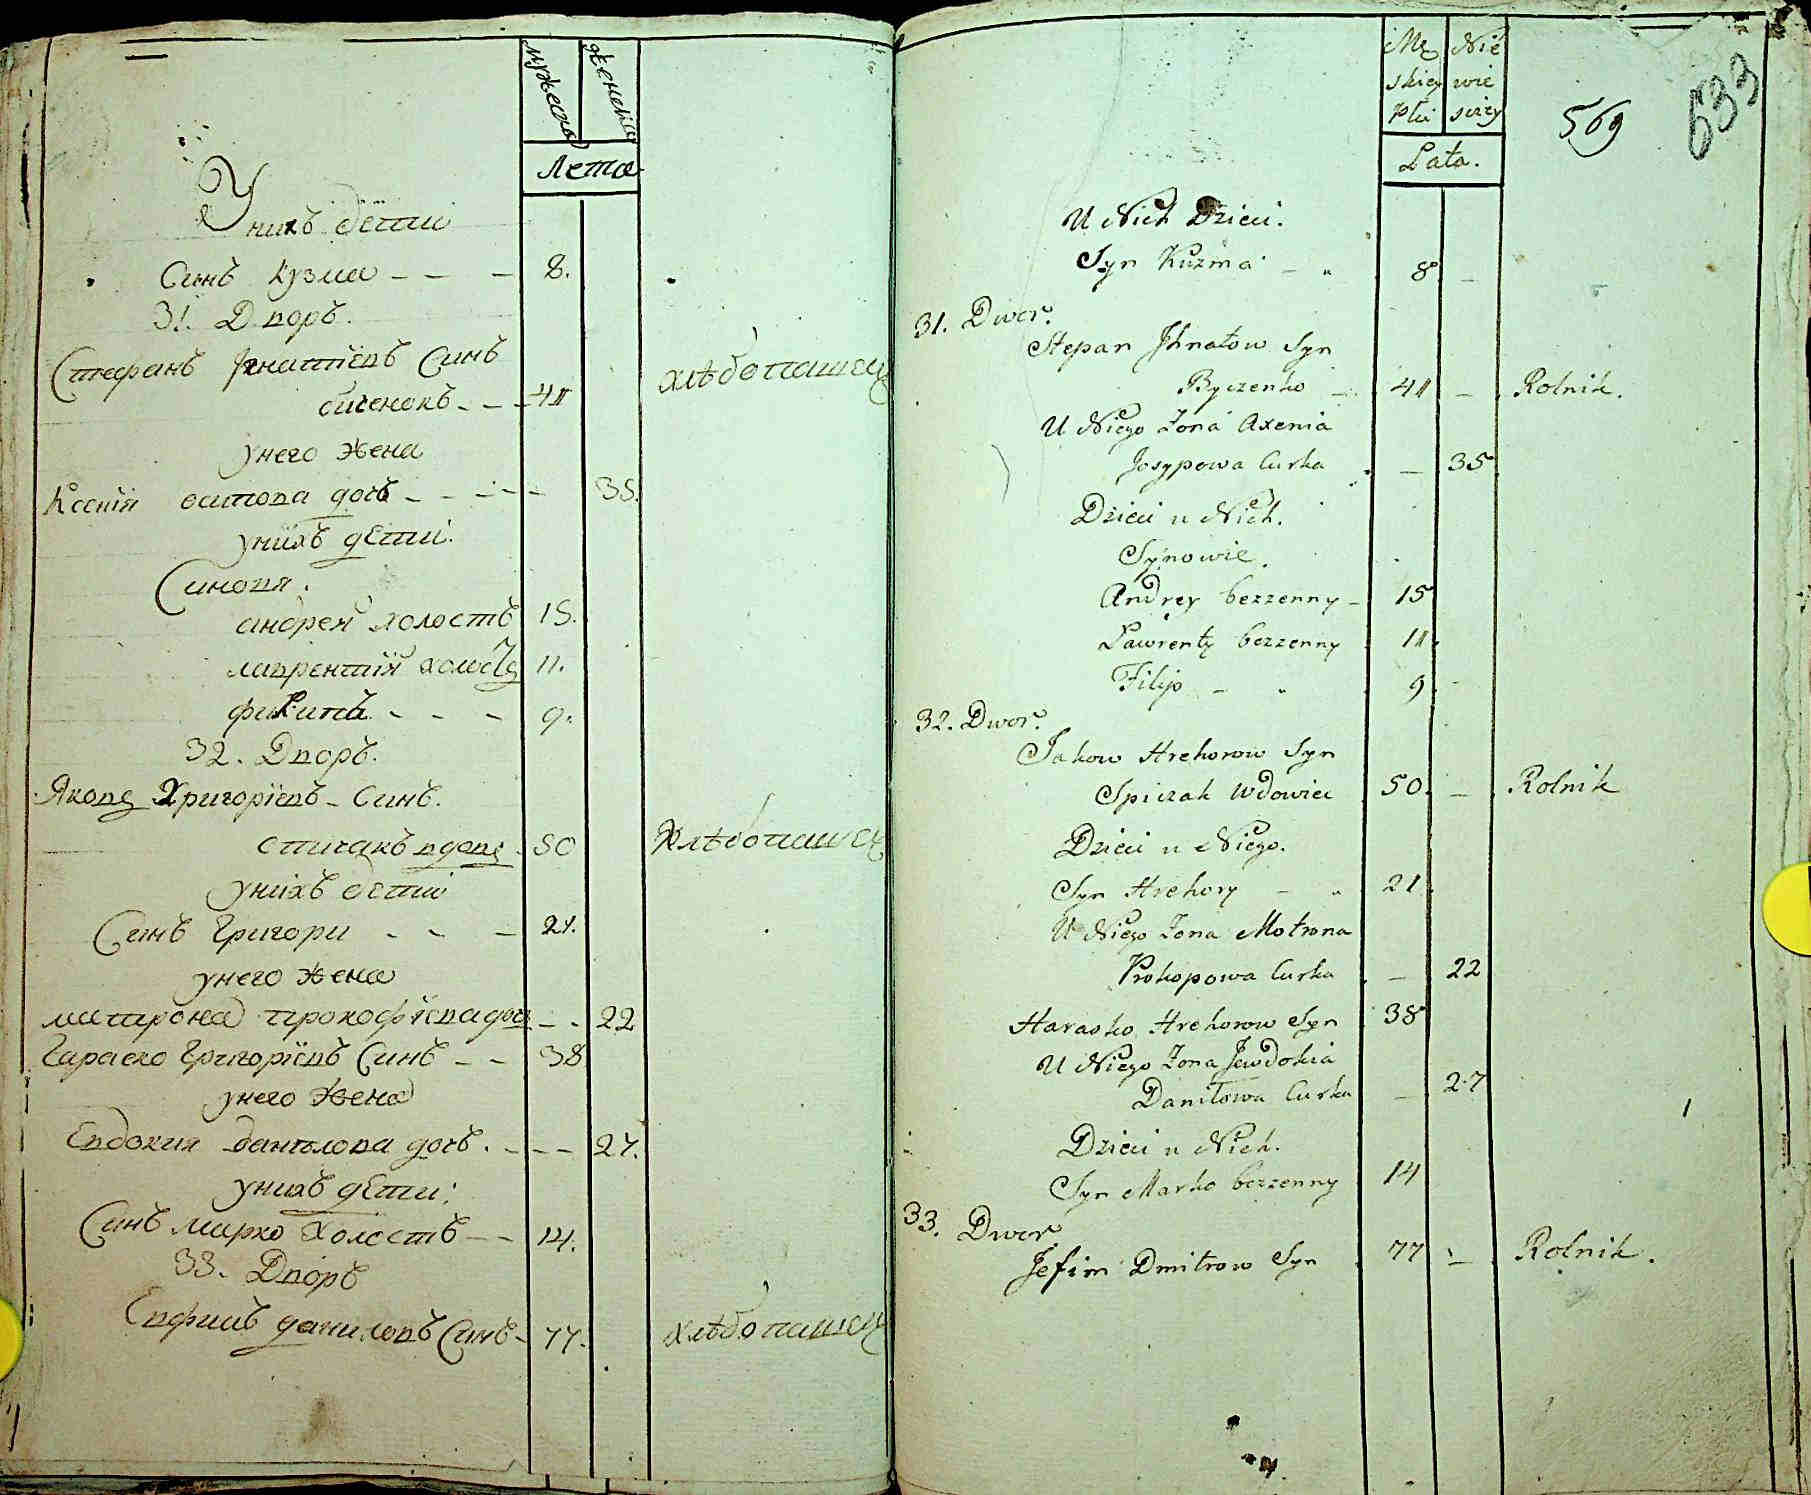 мужеска
женска
Лета
У нихъ дети
Синъ Кузма - - - 8.
31. Дворъ.
Стефанъ Игнатіевъ Синъ
биченокъ - - - 41 хлѣбопашец
унего жена
Ксенія осипова дочь - - - - 35.
унихъ дети.
Синовя.
андрей холостъ 15.
лаврентій холостъ 11.
филипъ - - - 9.
32. Дворъ.
Яковъ Григоріевъ - Синъ.
спичакъ вдовец 50 хлѣбопашец
унихъ дети
Синъ Григори - - - 21.
унего жена
матрона прокофіева дочь - - 22
Гараско Григоріевъ Синъ - - 38
унего жена
Евдокия данилова дочь. - - - 27.
унихъ дети:
Синъ марко холостъ - - 14.
33. Дворъ
Евфимъ даниловъ Синъ - 77. хлѣбопашец
Mę Nie
skiey wie
Płci sciey
Lata.
569
633
U Nich Dzieci.
Syn Kuzma - 8 -
31. Dwor.
Stepan Ihnatow Syn
Byczenko - 41 - Rolnik.
U Niego Zona Axenia
Josypowa Curka - 35
Dzieci u Nich.
Synowie.
Andrey bezzenny - 15
Lawrenty bezzenny 11.
Filip - 9.
32. Dwor.
Jakow Hrehorow Syn
Spiczak Wdowiec 50. - Rolnik
Dzieci u Niego.
Syn Hrehory - 21
U Niego Zona Motrona
Prokopowa Curka - 22
Harasko Hrehorow Syn 38
U Niego Zona Jewdokia
Daniłowa Curka - 27
Dzieci u Nich.
Syn Marko bezzenny 14
33. Dwor
Jefim Dmitrow Syn 77 - Rolnik.